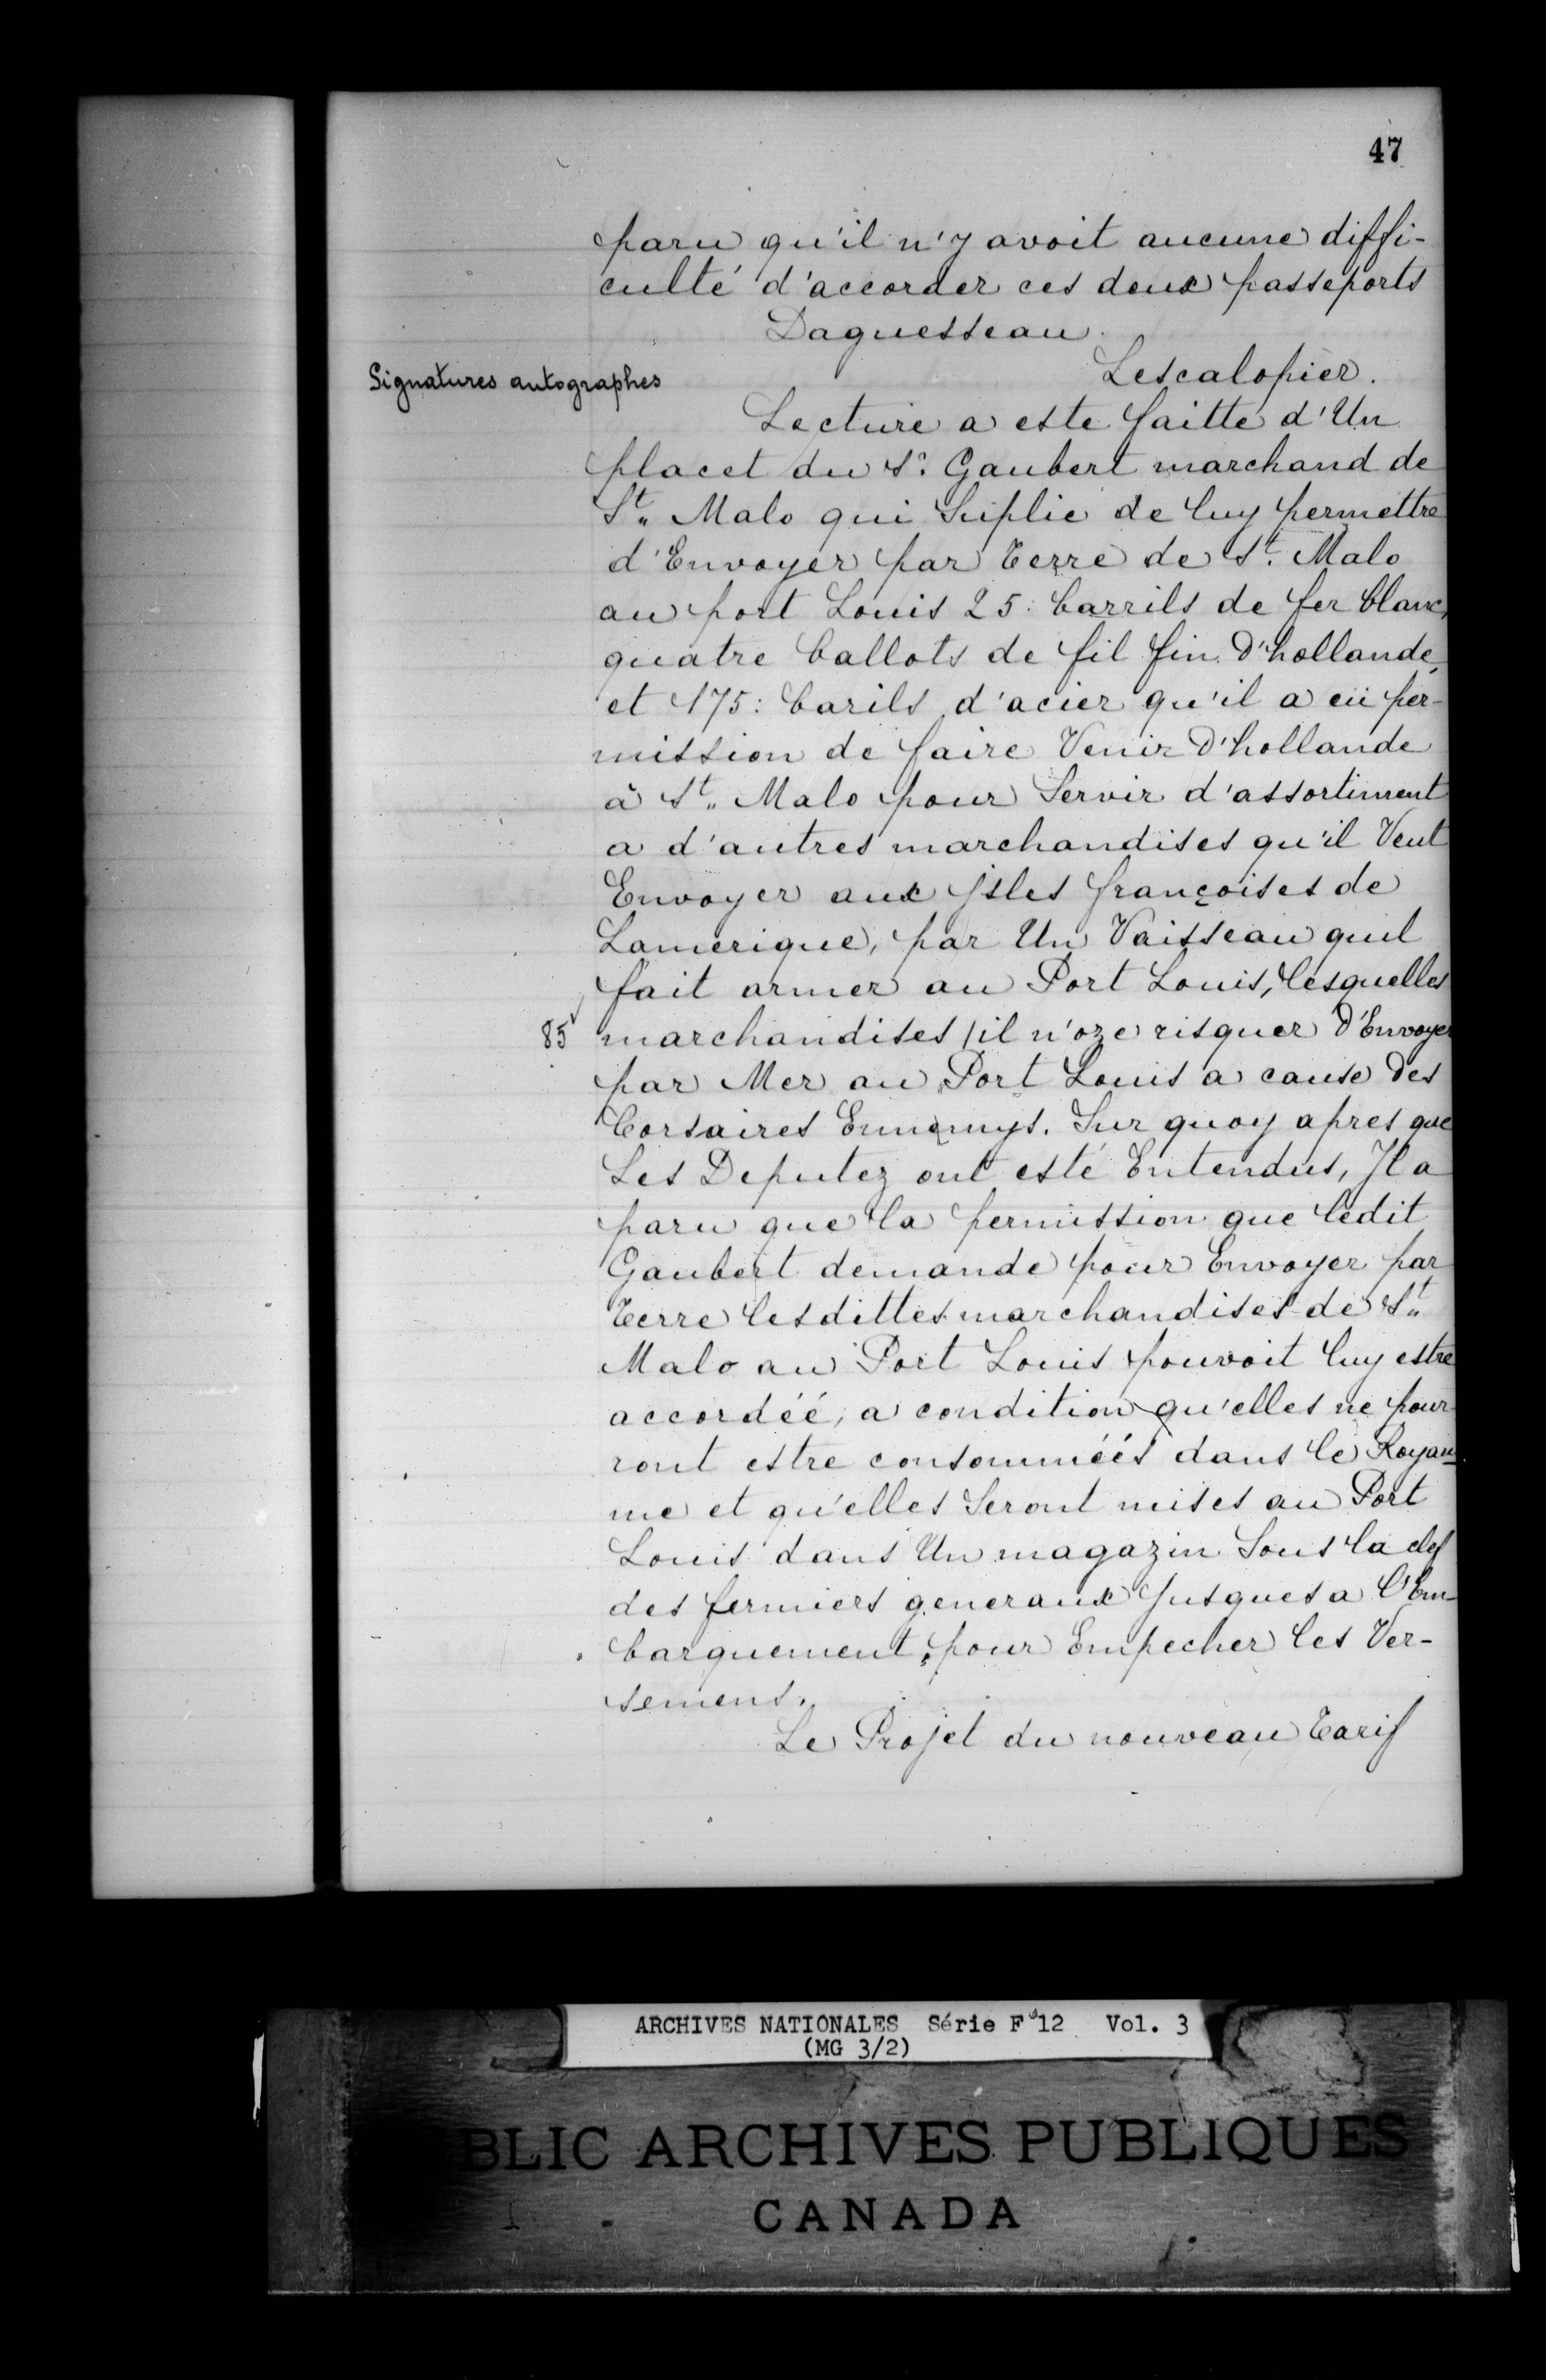 47
paru qu'il n'y avoit aucune diffi-
culté d'accorder ces deux passeports
Daguesseau.
Lescalopier.
Signatures autographes
Lecture a este faitte d'Un
placet du Sr. Gaubert marchand de
St. Malo qui Suplie de luy permettre
d'Envoyer par Terre de St. Malo
au port Louis 25: barrils de fer blanc,
quatre ballots de fil fin d'hollande,
et 175: barils d'acier qu'il a eü per-
mission de faire Venir d'hollande
à St. Malo pour Servir d'assortiment
a d'autres marchandises qu'il Veut
Envoyer aux Isles françoises de
Lamerique, par Un Vaisseau quil
fait armer au Port Louis, lesquelles
85 marchandises /il n'oze risquer d'Envoyer
par Mer au Port Louis a cause des
Corsaires Ennemys. Sur quoy apres que
Les Deputez ont esté Entendus, Il a
paru que la permission que ledit
Gaubert demande pour Envoyer par
Terre lesdittes marchandises de St.
Malo au Port Louis pouvoit luy estre
accordéé, a condition qu'elles ne pour-
ront estre consomméés dans le Royau-
me et qu'elles Seront mises au Port
Louis dans Un magazin Sous la clef
des fermiers generaux Jusques a l'Em-
barquement, pour Empecher les Ver-
semens.
Le Projet du nouveau Tarif
ARCHIVES NATIONALES Série F 12 Vol. 3
(MG 3/2)
BLIC ARCHIVES PUBLIQUES
CANADA